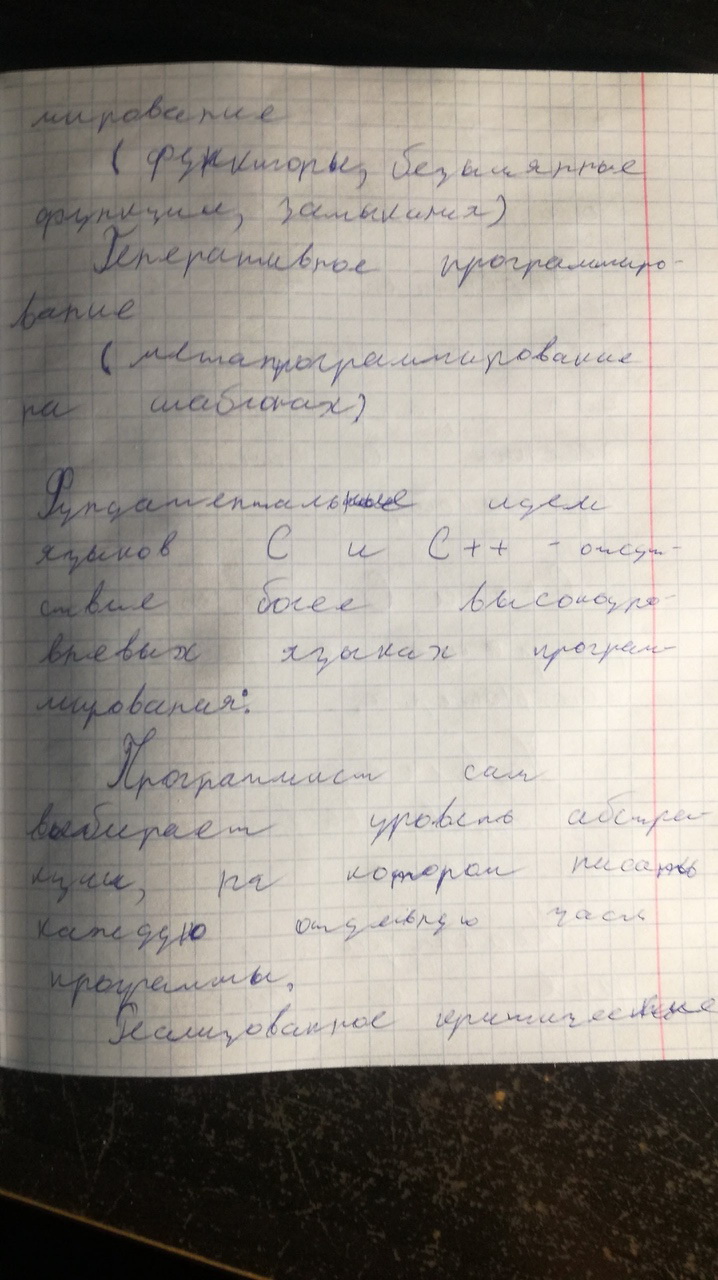 мирование
( функторы, безымянные
функции, замыкания)
Генеративное программиро-
вание
( метапрограммирование
на шаблонах)
Фундаментальные идеи
языков С и С++ - отсут-
ствие более высокоуро-
вневых языках програм-
мирования:
Программист сам
выбирает уровень абстра-
кции, на котором писать
каждую отдельную часть
программы.
Реализованное критические